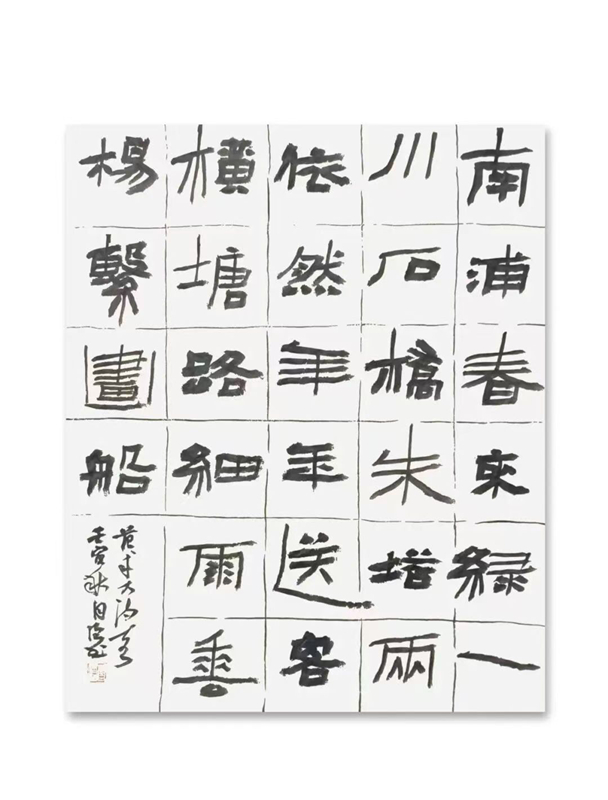 南浦春來緑一
川石橋朱塔兩
依然年年送客
橫塘路細雨垂
楊繫畫船
范成大詩
壬寅秋月